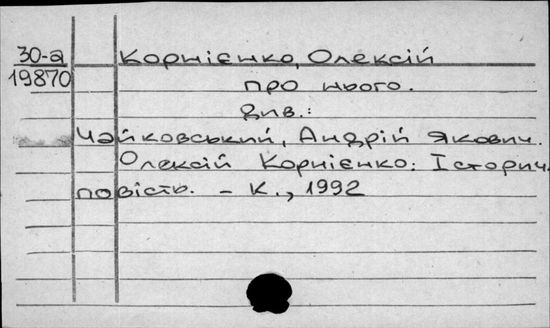 30-а Корнієнко, Олексій
19870 про нього.
див.:
Чайковський, Андрій Якович.
Олексій Корнієнко: Історич.
повість. – К., 1992